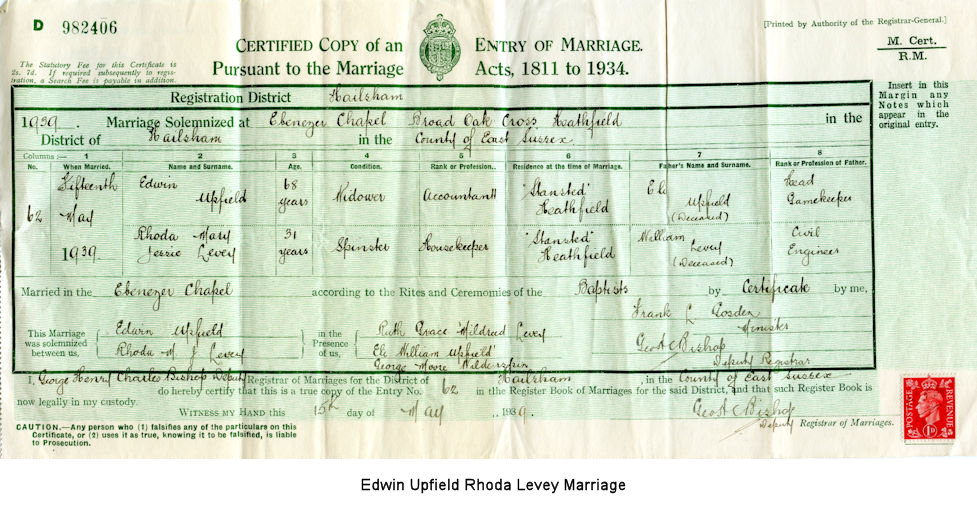 D 982406
[Printed by Authority of the Registrar-General.]
CERTIFIED COPY of an ENTRY OF MARRIAGE.
Pursuant to the Marriage Acts, 1811 to 1934.
M. Cert.
R.M.
The Statutory Fee for this Certificate is
2s. 7d. If required subsequently to regis-
tration, a Search Fee is payable in addition.
Insert in this
Margin any
Notes which
appear in the
original entry.
Registration District Hailsham
1939. Marriage Solemnized at Ebenezer Chapel Broad Oak Cross Heathfield in the
District of Hailsham in the County of East Sussex
Columns :— 1 2 3 4 5 6 7 8
No. When Married. Name and Surname. Age. Condition. Rank or Profession. Residence at the time of Marriage. Father's Name and Surname. Rank or Profession of Father.
62 Fifteenth May 1939 Edwin Upfield 68 years Widower Accountant "Stansted" Heathfield Eli Upfield (Deceased) Head Gamekeeper
Rhoda Mary Jessie Levey 31 years Spinster Housekeeper "Stansted" Heathfield William Levey (Deceased) Civil Engineer
Married in the Ebenezer Chapel according to the Rites and Ceremonies of the Baptists by Certificate by me,
Frank L Gosden
Minister
This Marriage was solemnized between us, Edwin Upfield Rhoda M. J Levey
in the Presence of us, Ruth Grace Mildred Levey Eli William Upfield George Moore Wilderspin
Geo H C Bishop
Deputy Registrar
I, George Henry Charles Bishop Deputy Registrar of Marriages for the District of Hailsham, in the County of East Sussex
do hereby certify that this is a true copy of the Entry No. 62 in the Register Book of Marriages for the said District, and that such Register Book is
now legally in my custody.
WITNESS MY HAND this 15th day of May, 1939.
Geo H C Bishop
Deputy Registrar of Marriages.
CAUTION.—Any person who (1) falsifies any of the particulars on this
Certificate, or (2) uses it as true, knowing it to be falsified, is liable
to Prosecution.
POSTAGE REVENUE
1D
Edwin Upfield Rhoda Levey Marriage